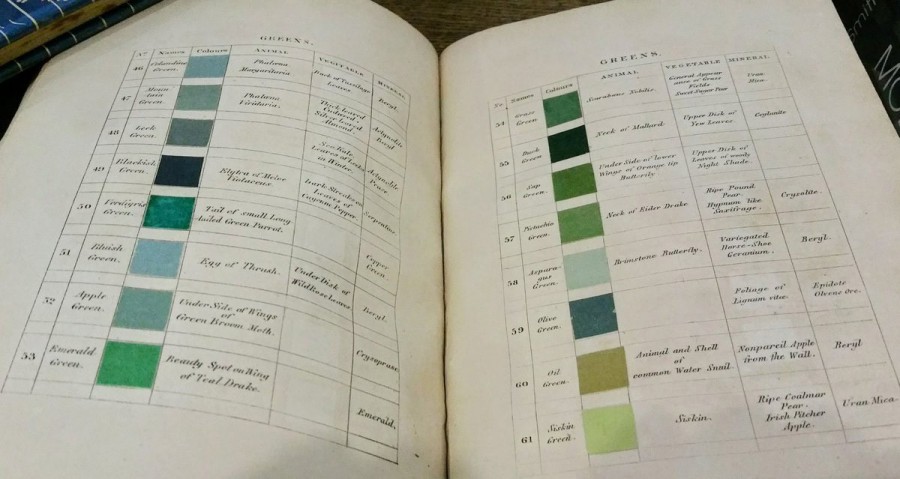 GREENS.
No Names Colours ANIMAL VEGETABLE MINERAL
46
Celandine
Green.
Phalæna
Margaritaria.
Back of Tussilage
Leaves.
Beryl.
47
Moun
tain
Green.
Phalæna
Viridaria.
Thick leaved
Cudweed
Silver leaved
Almond.
Actynolite
Beryl
48
Leek
Green.
Sea Kale
Leaves of Leeks
in Winter.
Actynolite
Prase
49
Blackish
Green.
Elytra of Meloe
Violaceus.
Dark Streaks on
Leaves of
Cayenne Pepper.
Serpentine.
50
Verdigris
Green.
Tail of small Long
tailed Green Parrot.
Copper
Green
51
Bluish
Green.
Egg of Thrush.
Under Disk of
Wild Rose leaves
Beryl.
52
Apple
Green.
Under Side of Wings
of
Green Broom Moth.
Crysoprase.
53
Emerald
Green.
Beauty Spot on Wing
of Teal Drake.
Emerald.
GREENS.
No. Names Colours ANIMAL VEGETABLE MINERAL
54
Grass
Green
Scarabæus Nobilis.
General Appear
ance of Grass
Fields
Sweet Sugar Pear
Uran
Mica.
55
Duck
Green
Neck of Mallard.
Upper Disk of
Yew Leaves.
Ceylanite
56
Sap
Green
Under Side of lower
Wings of Orange tip
Butterfly
Upper Disk of
Leaves of woody
Night Shade.
57
Pistachio
Green.
Neck of Eider Drake
Ripe Pound
Pear.
Hypnum like
Saxifrage.
Crysolite.
58
Aspara-
gus
Green.
Brimstone Butterfly.
Variegated
Horse-Shoe
Geranium.
Beryl.
59
Olive
Green.
Foliage of
Lignum vitæ.
Epidote
Olvene Ore.
60
Oil
Green.
Animal and Shell
of
common Water Snail.
Nonpareil Apple
from the Wall.
Beryl
61
Siskin
Green.
Siskin.
Ripe Coalmar
Pear.
Irish Pitcher
Apple.
Uran Mica.